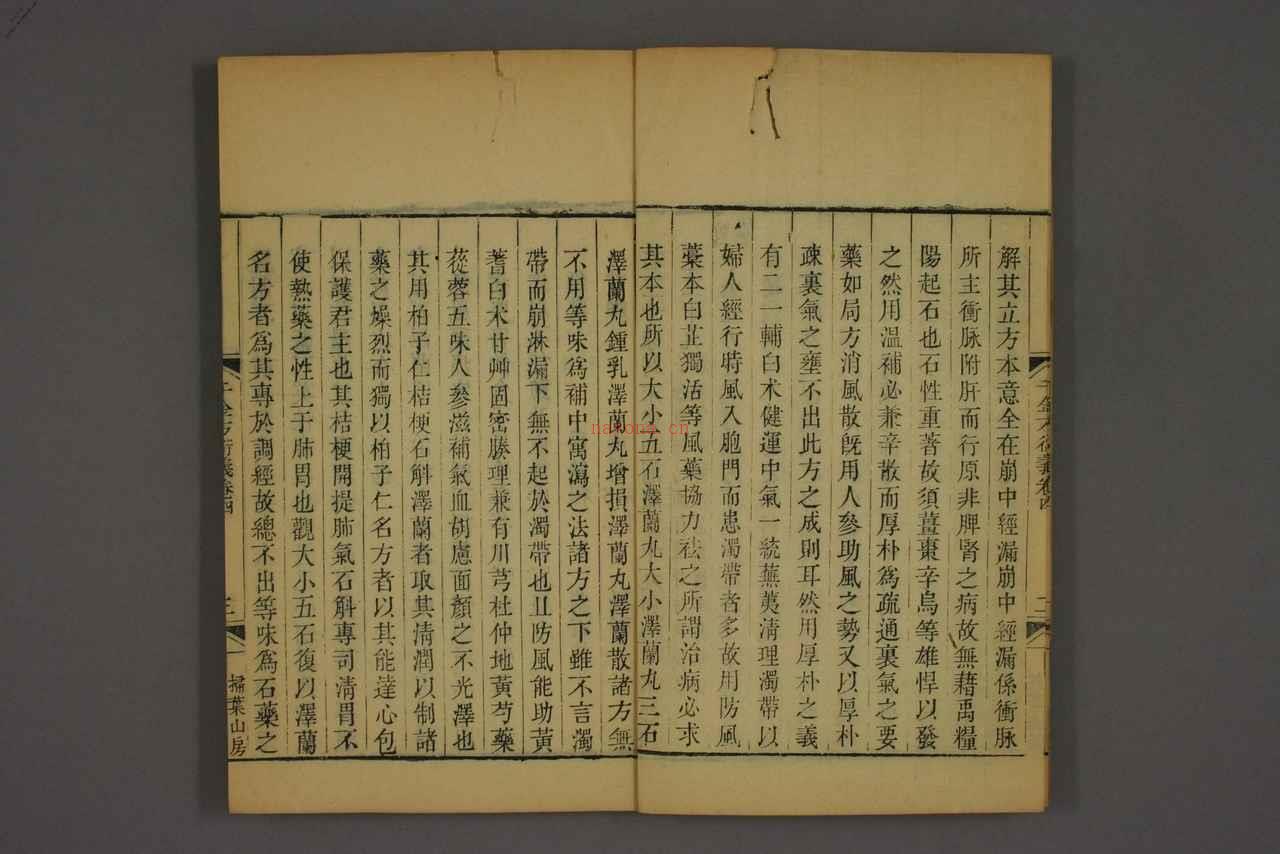 解其立方本意全在崩中經漏崩中經漏係衝脉
所主衝脉附肝而行原非脾腎之病故無藉禹糧
陽起石也石性重著故須薑棗辛烏等雄悍以發
之然用溫補必兼辛散而厚朴為疏通裏氣之要
藥如局方消風散旣用人參助風之勢又以厚朴
疎裏氣之壅不出此方之成則耳然用厚朴之義
有二一輔白朮健運中氣一統蕪荑清理濁帶以
婦人經行時風入胞門而患濁帶者多故用防風
藁本白芷獨活等風藥協力祛之所謂治病必求
其本也所以大小五石澤蘭丸大小澤蘭丸三石
澤蘭丸鍾乳澤蘭丸增損澤蘭丸澤蘭散諸方無
不用等味為補中寓瀉之法諸方之下雖不言濁
帶而崩淋漏下無不起於濁帶也且防風能助黃
蓍白朮甘艸固密腠理兼有川芎杜仲地黃芍藥
蓯蓉五味人參滋補氣血胡慮面顏之不光澤也
其用柏子仁桔梗石斛澤蘭者取其清潤以制諸
藥之燥烈而獨以柏子仁名方者以其能達心包
保護君主也其桔梗開提肺氣石斛專司清胃不
使熱藥之性上于肺胃也觀大小五石復以澤蘭
名方者為其專於調經故總不出等味為石藥之
千金方衍義卷四
二
千金方衍義卷四
三
掃葉山房
nanona.cn